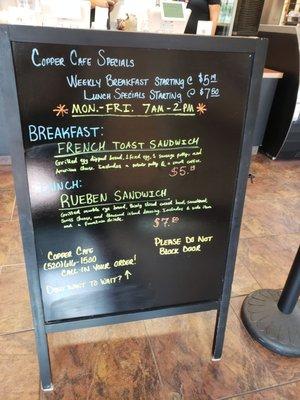 Copper Cafe Specials
Weekly Breakfast Starting @ $5.19
Lunch Specials Starting @ $7.50
Mon.-Fri. 7am-2pm
Breakfast:
French Toast Sandwich
Grilled egg dipped bread, fried egg, sausage patty, and
American cheese. Includes a potato patty & a small coffee.
$5.19
Lunch:
Rueben Sandwich
Grilled marble rye bread, thinly sliced corned beef, sauerkraut,
Swiss cheese, and thousand island dressing. Includes a side item
and a fountain drink.
$7.50
Copper Cafe
(520)616-1500
Call in your order!
Don't want to wait? ↑
Please Do Not
Block Door